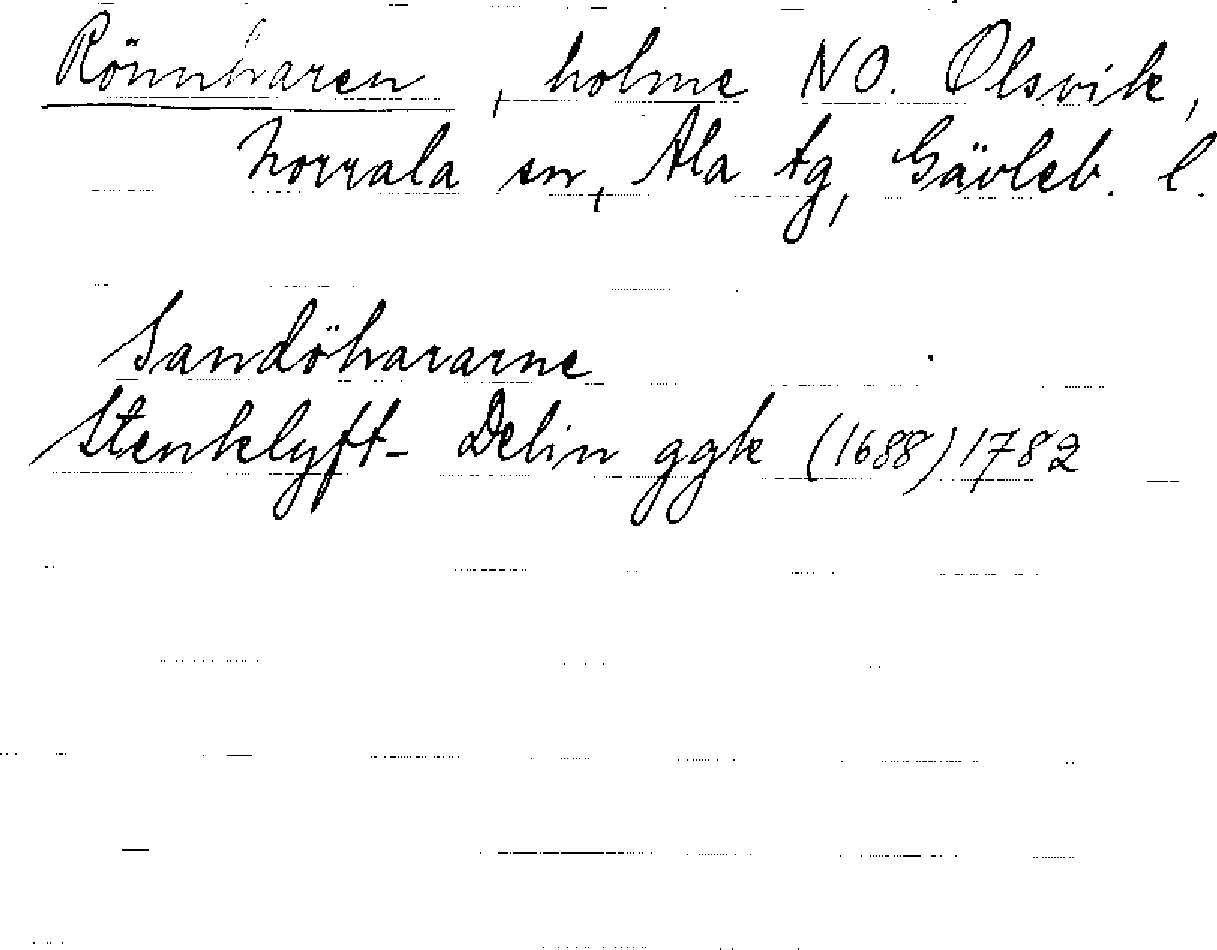 Rönnharen, holme NO. Olsvik,
Norrala sn, Ala tg, Gävleb. l.
Sandöhararne
Stenklyft- Delin ggk (1688) 1782